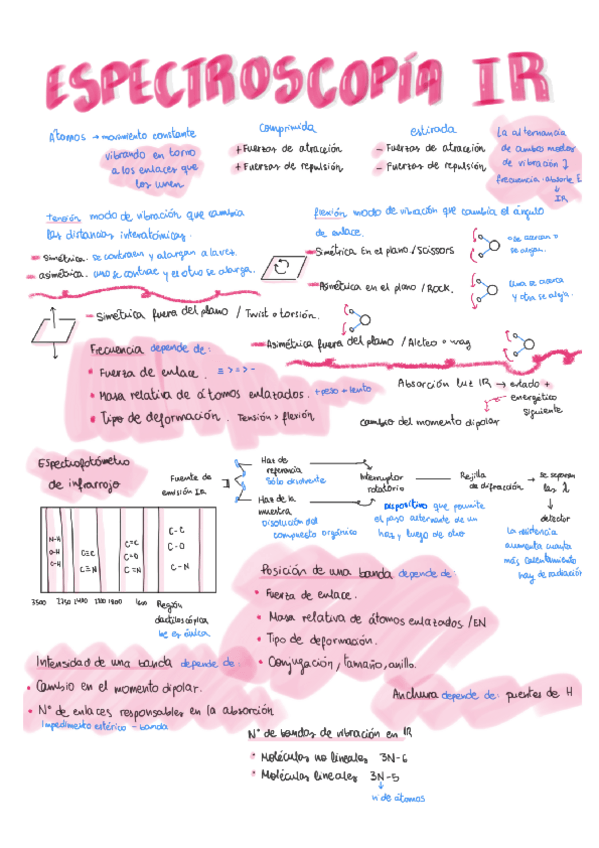 ESPECTROSCOPÍA IR
Átomos → movimiento constante
vibrando en torno
a los enlaces que
los unen
comprimida
+ Fuerzas de atracción
+ Fuerzas de repulsión
estirada
- Fuerzas de atracción
- Fuerzas de repulsión
La alternancia
de ambos modos
de vibración ↓
frecuencia · absorbe E
↓
IR
tensión modo de vibración que cambia
las distancias interatómicas.
simétrica. se contraen y alargan a la vez.
asimétrica. uno se contrae y el otro se alarga.
flexión modo de vibración que cambia el ángulo
de enlace.
Simétrica En el plano / Scissors
o se acercan o
se alejan.
Asimétrica en el plano / Rock.
Uno se acerca
y otro se aleja.
Simétrica fuera del plano / Twist o torsión.
Asimétrica fuera del plano / Aleteo o wag
Frecuencia depende de:
Fuerza de enlace. ≡ > = > -
Masa relativa de átomos enlazados. + peso = lento
Tipo de deformación. Tensión > flexión
Absorción luz IR → estado +
energético
siguiente
cambio del momento dipolar
Espectrofotómetro
de infrarrojo
Fuente de
emisión IR
Haz de
referencia
Sólo disolvente
Haz de la
muestra
Disolución del
compuesto orgánico
Interruptor
rotatorio
Dispositivo que permite
el paso alternante de un
haz y luego de otro
Rejilla
de difracción
→ se separan
las λ
↓
detector
La resistencia
aumenta cuanto
más calentamiento
hay de radiación
N-H
O-H
C-H
C≡C
C≡N
C=C
C=O
C=N
C-C
C-O
C-N
Región
dactiloscópica
be es única
Posición de una banda depende de:
Fuerza de enlace.
Masa relativa de átomos enlazados / EN
Tipo de deformación.
Conjugación, tamaño, anillo.
Intensidad de una banda depende de:
Cambio en el momento dipolar.
Nº de enlaces responsables en la absorción
Impedimento estérico - banda
Anchura depende de: puentes de H
Nº de bandas de vibración en IR
Moléculas no lineales 3N-6
Moléculas lineales 3N-5
↓
n de átomos